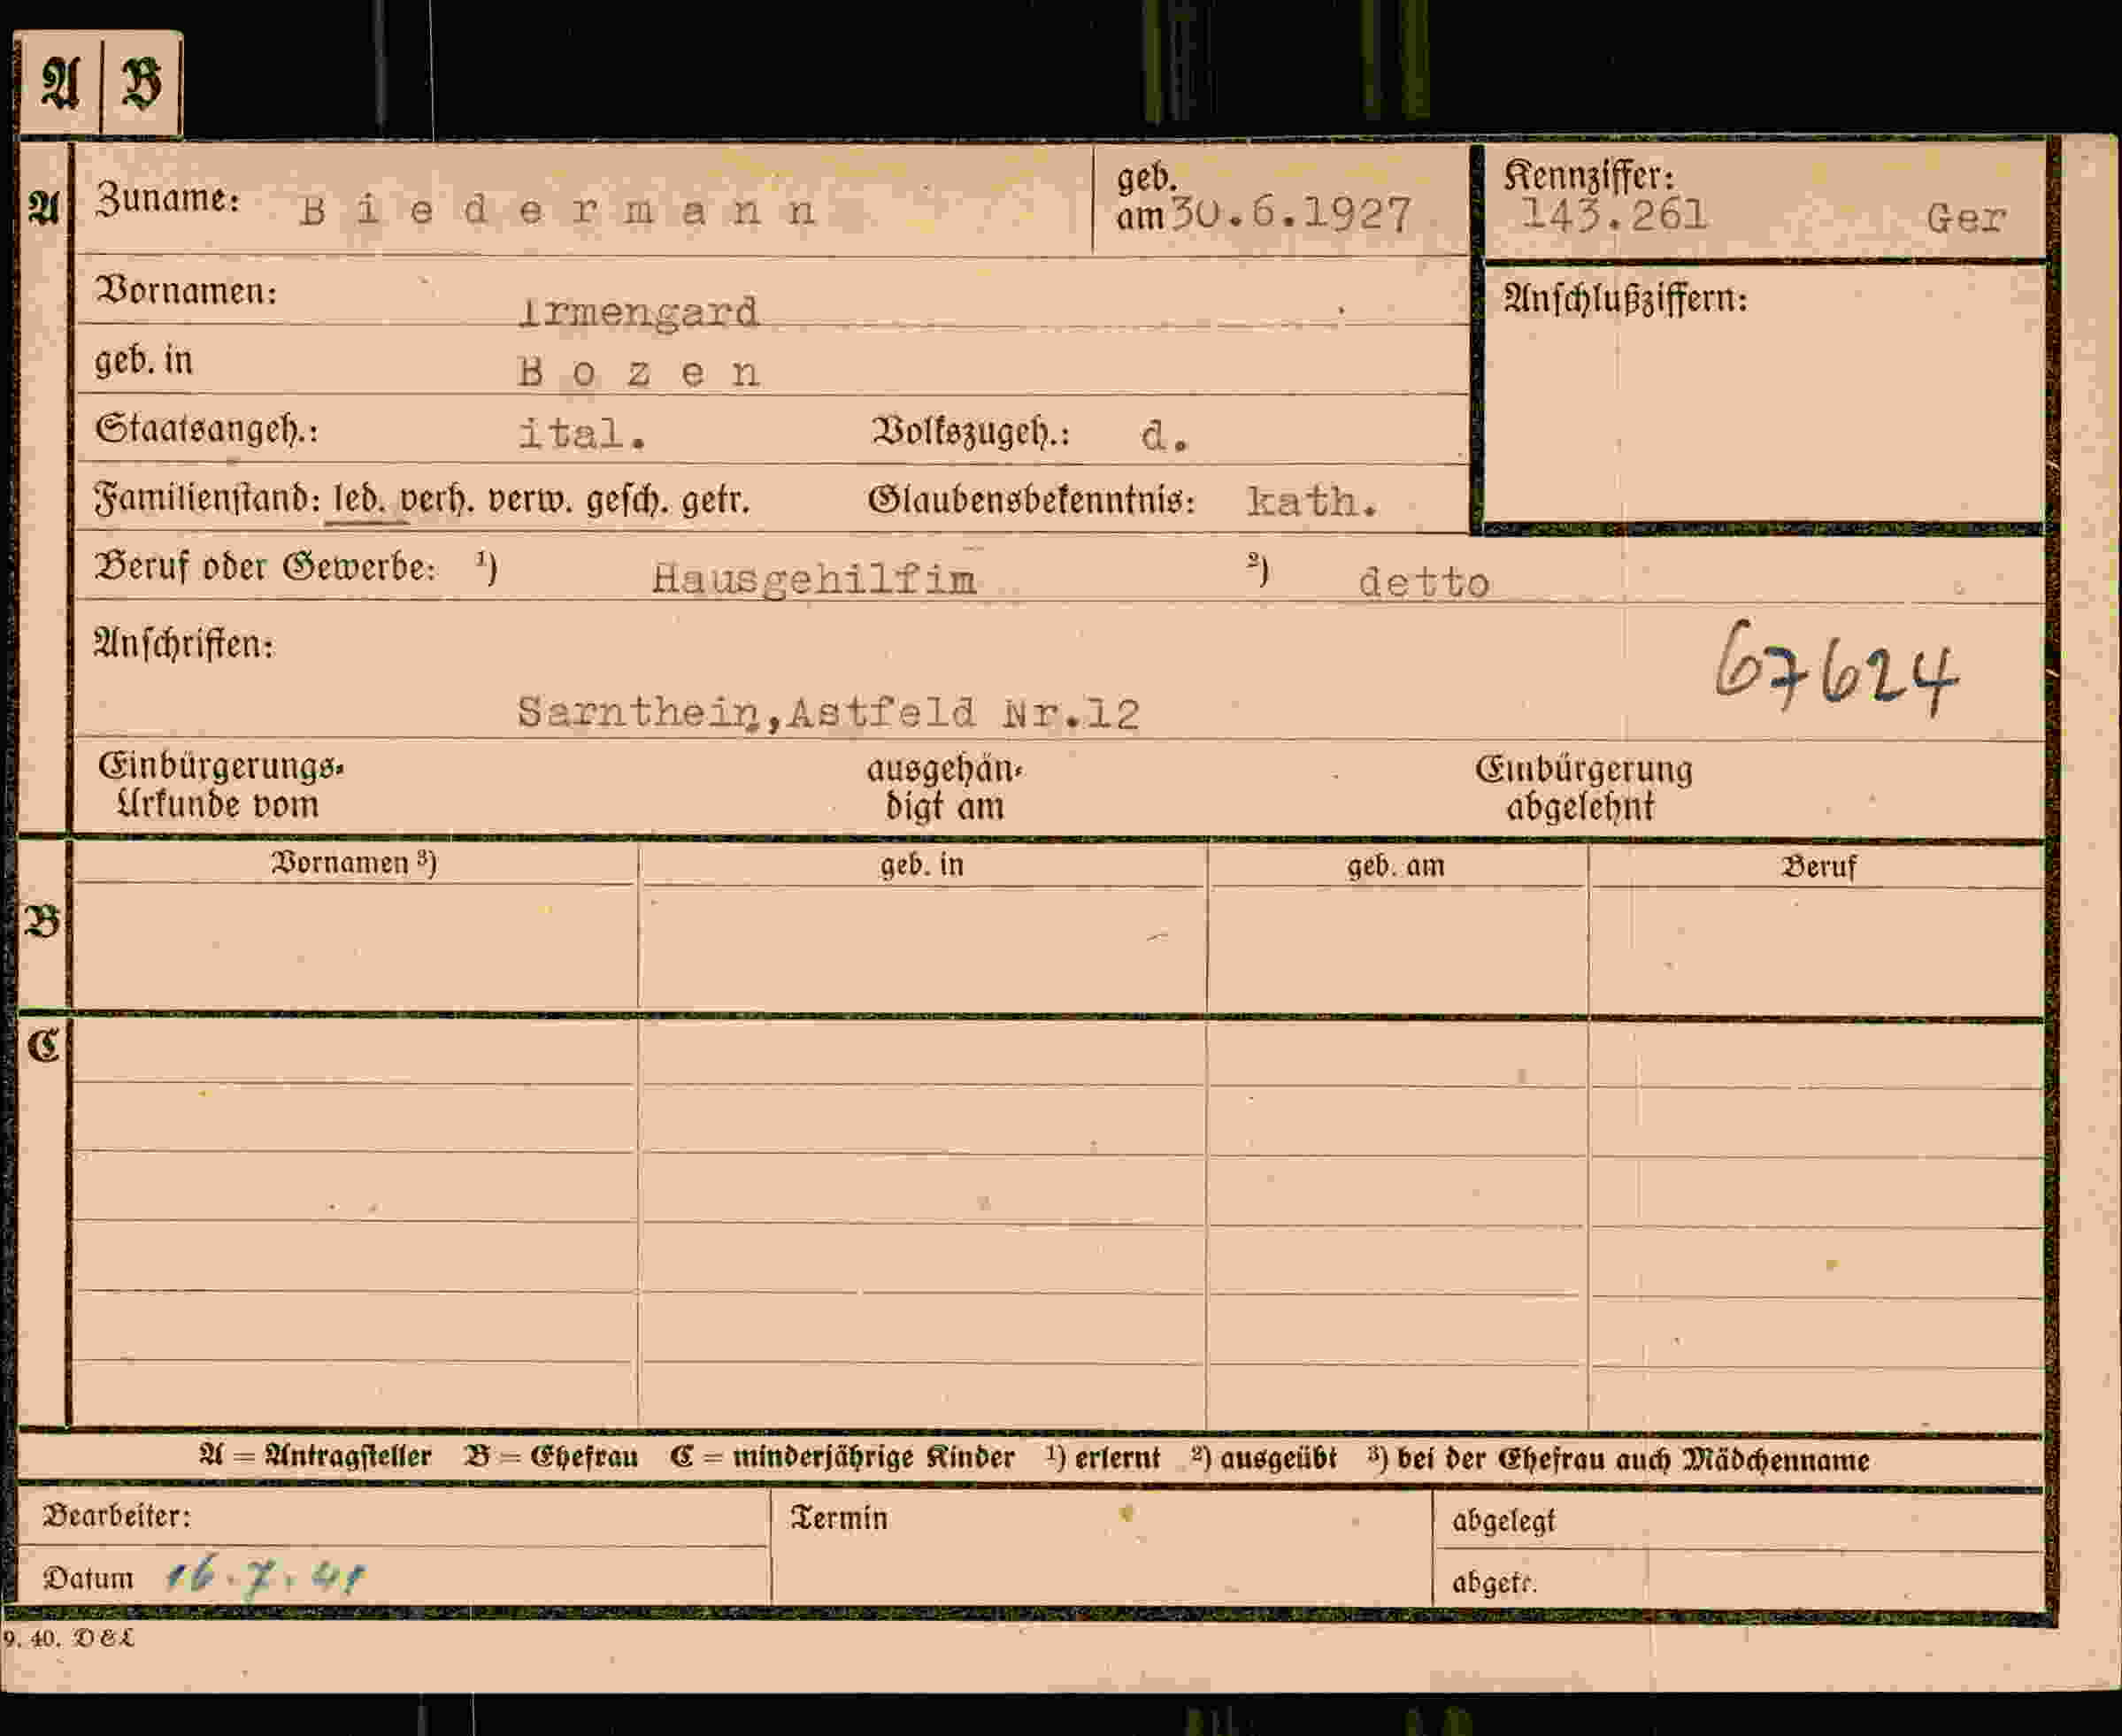 A B
A Zuname: Biedermann geb. am 30.6.1927 Kennziffer: 143.261 Ger
Vornamen: Irmengard Anschlußziffern:
geb. in Bozen
Staatsangeh.: ital. Volkszugeh.: d.
Familienstand: led. verh. verw. gesch. getr. Glaubensbekenntnis: kath.
Beruf oder Gewerbe: ¹) Hausgehilfim ²) detto
Anschriften: 67624
Sarnthein,Astfeld Nr.12
Einbürgerungs- ausgehän- Einbürgerung
Urkunde vom digt am abgelehnt
Vornamen ³) geb. in geb. am Beruf
B
C
A = Antragsteller B = Ehefrau C = minderjährige Kinder ¹) erlernt ²) ausgeübt ³) bei der Ehefrau auch Mädchenname
Bearbeiter: Termin abgelegt
Datum 16.7.41 abgetr.
9. 40. D & L